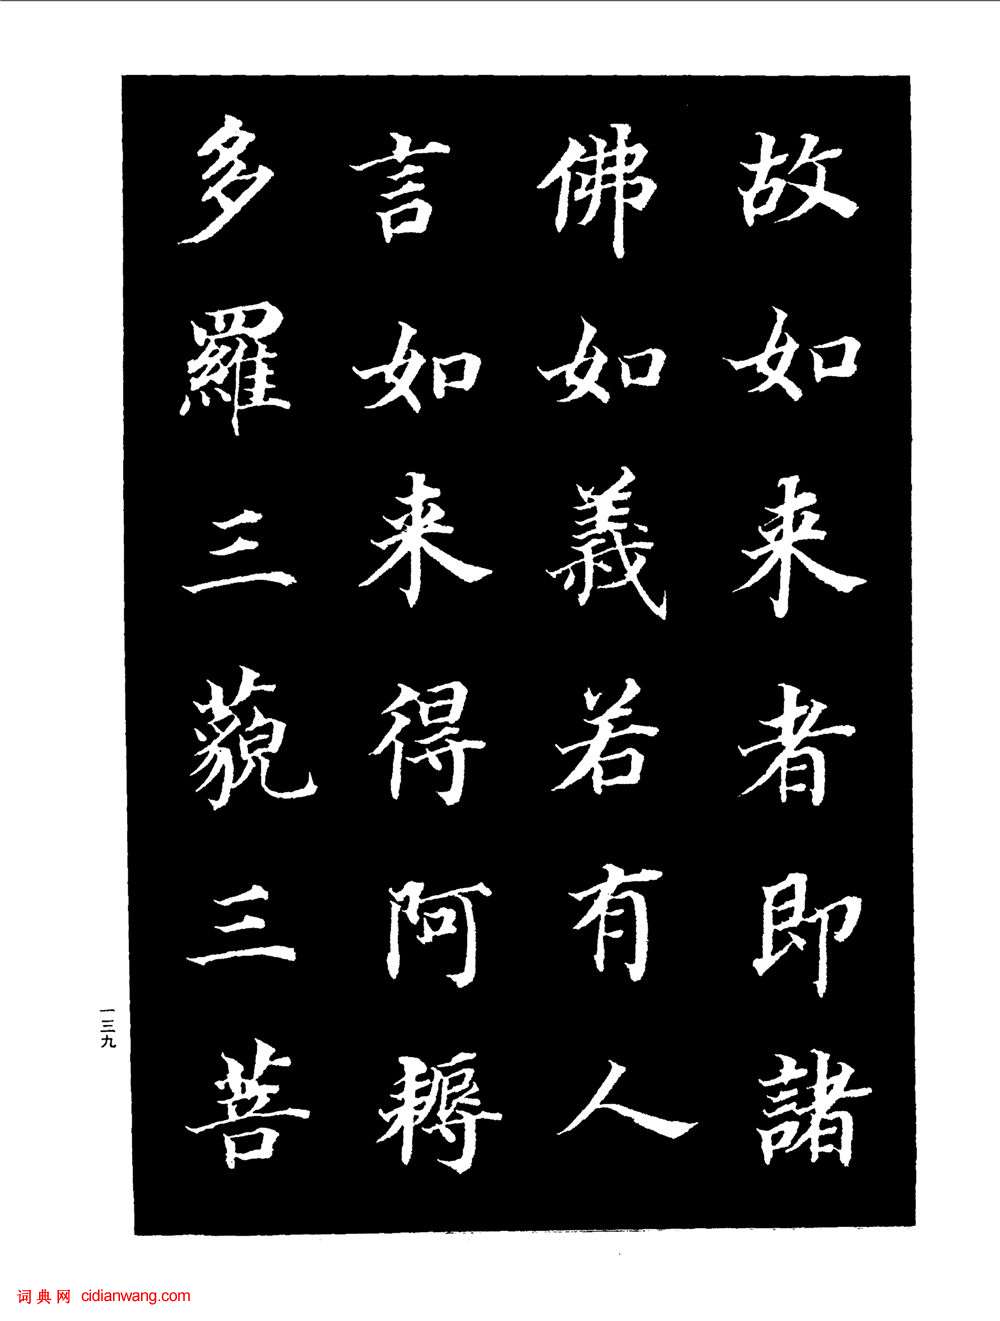 故如来者即諸
佛如義若有人
言如来得阿耨
多羅三藐三菩
一三九
词典网 cidianwang.com